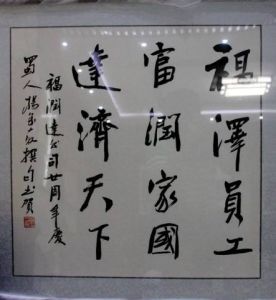 福澤員工
富潤家國
達濟天下
福潤達公司廿周年慶
蜀人楊撰自書賀